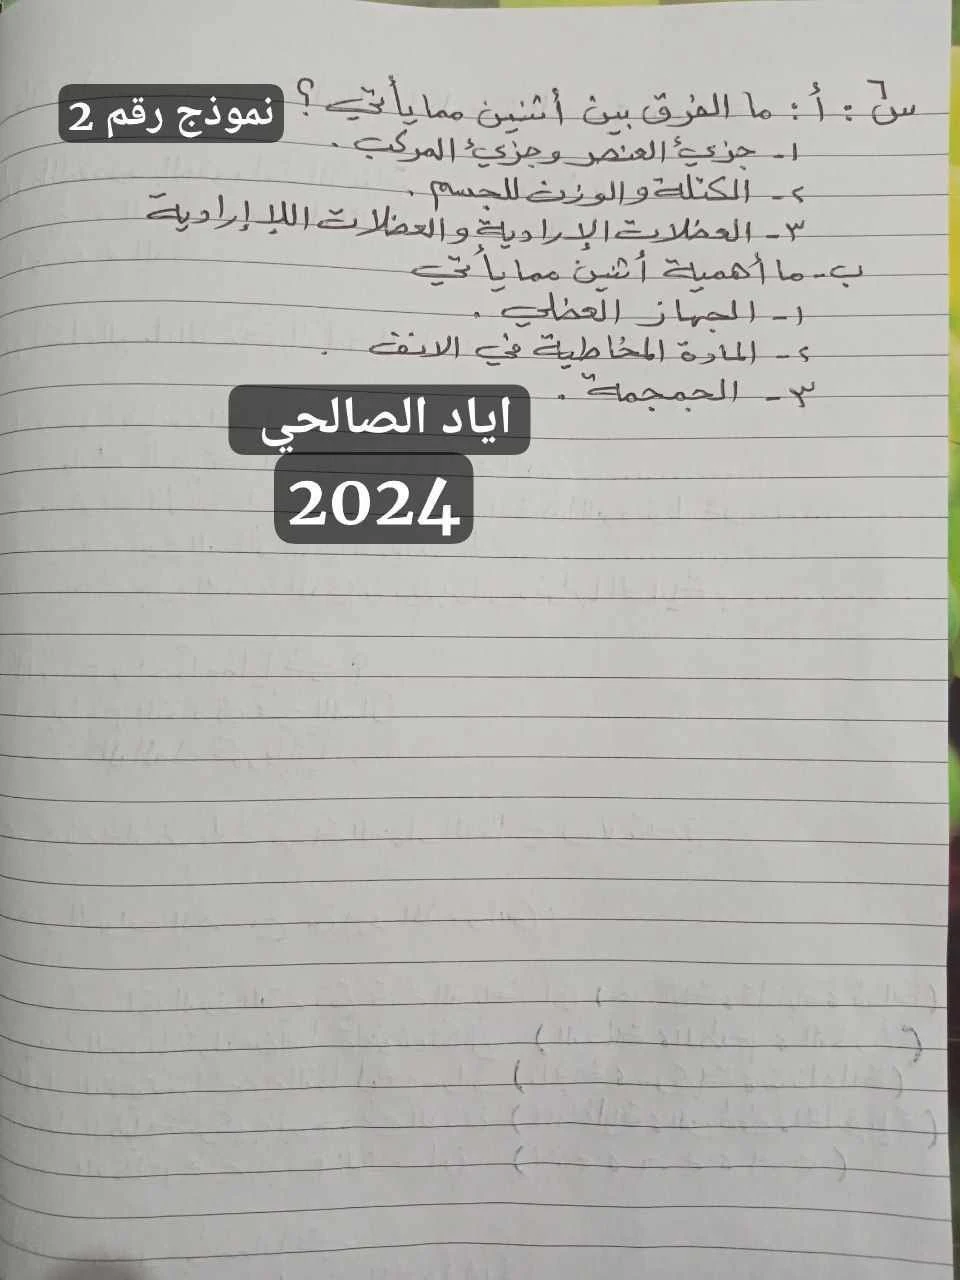 س٦ : أ : ما الفرق بين أثنين مما يأتي ؟
نموذج رقم 2
١- جزيئ العنصر وجزيئ المركب .
٢- الكتلة والوزن للجسم .
٣- العضلات الإرادية والعضلات اللاإرادية
ب- ما أهمية أثنين مما يأتي
١- الجهاز العضلي .
٢- المادة المخاطية في الانف .
٣- الجمجمة .
اياد الصالحي
2024